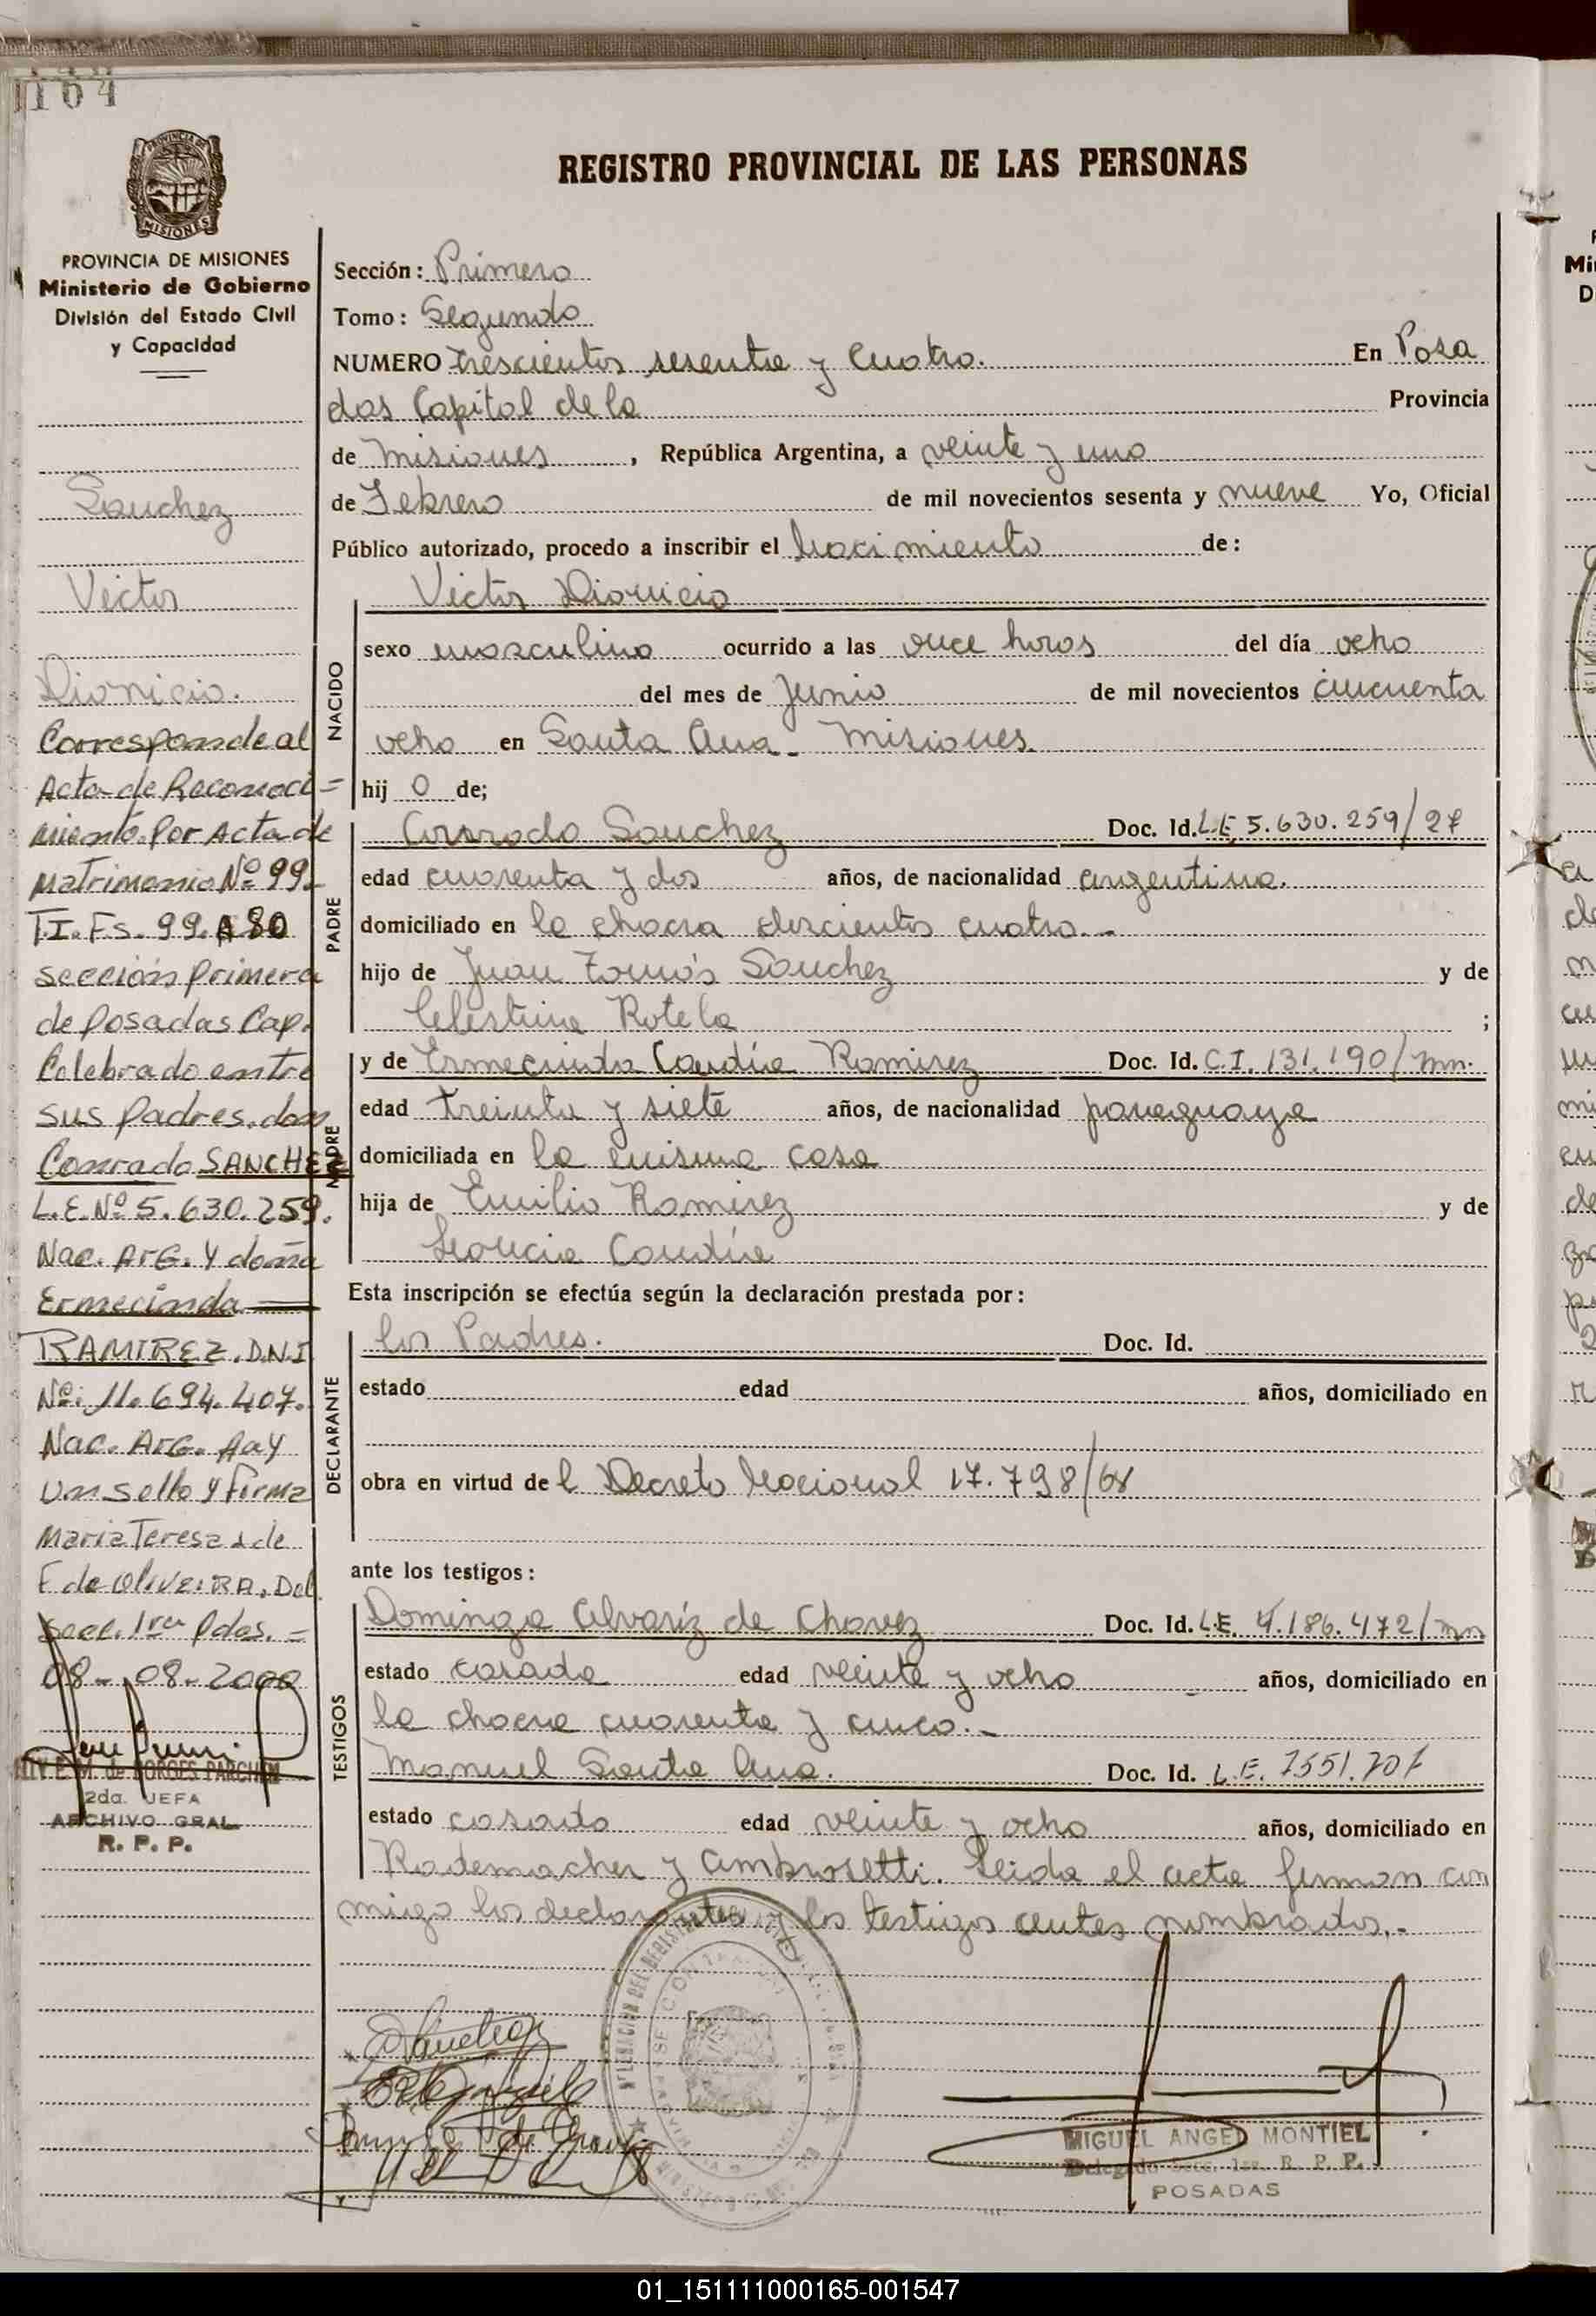 164
REGISTRO PROVINCIAL DE LAS PERSONAS
PROVINCIA DE MISIONES
Ministerio de Gobierno
División del Estado Civil
y Capacidad
Sanchez
Victor
Dionicio.
Corresponde al
Acta de Reconoci=
miento por Acta de
Matrimonio Nº 99-
T.I. Fs. 99. A 80
sección primera
de Posadas Cap.
Celebrado entre
sus padres. don
Conrado SANCHEZ
L.E. Nº 5.630.259.
Nac. Arg. Y doña
Ermecinda
RAMIREZ. D.N.I
Nº: 11.694.407.
Nac. Arg. Hay
un sello y Firma
Maria Teresa de
F de OLIVEIRA. Del.
Secc. 1ra Pdas. =
08-08-2000
E. M. de BORGES PARCHEN
2da. JEFA
ARCHIVO GRAL.
R. P. P.
Sección: Primera
Tomo: Segundo
NUMERO trescientos sesenta y cuatro. En Posa
das Capital de la Provincia
de Misiones, República Argentina, a veinte y uno
de Febrero de mil novecientos sesenta y nueve Yo, Oficial
Público autorizado, procedo a inscribir el Nacimiento de:
Victor Dionicio
NACIDO
sexo masculino ocurrido a las once horas del día ocho
del mes de Junio de mil novecientos cincuenta
ocho en Santa Ana - Misiones
hij o de;
PADRE
Conrado Sanchez Doc. Id. L.E. 5.630.259/27
edad cuarenta y dos años, de nacionalidad argentina.
domiciliado en la chacra doscientos cuatro.-
hijo de Juan Tomás Sanchez y de
Celestina Rotela ;
MADRE
y de Ermecinda Candia Ramirez Doc. Id. C.I. 131.190/mn.
edad treinta y siete años, de nacionalidad paraguaya
domiciliada en la misma casa
hija de Emilio Ramirez y de
Leoncia Candia
Esta inscripción se efectúa según la declaración prestada por:
DECLARANTE
los Padres. Doc. Id.
estado edad años, domiciliado en
obra en virtud de l Decreto Nacional 17.798/68
ante los testigos:
TESTIGOS
Dominga Alvariz de Chavez Doc. Id. L.E. 4.186.472/mn
estado casada edad veinte y ocho años, domiciliado en
la chacra cuarenta y cinco.-
Manuel Santa Ana. Doc. Id. L.E. 7551.707
estado casado edad veinte y ocho años, domiciliado en
Rademacher y Ambrosetti. Leida el acta firman con
migo los declarantes y los testigos antes nombrados.-
MIGUEL ANGEL MONTIEL
Delegado Secc. 1ra. R. P. P.
POSADAS
01_151111000165-001547